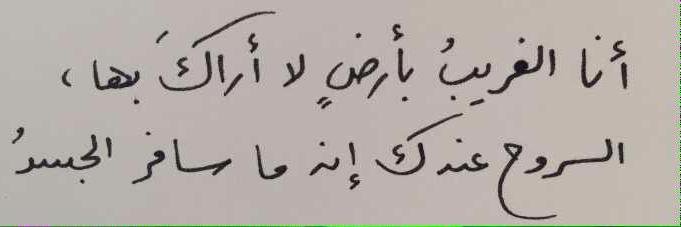 أنا الغريبُ بأرضٍ لا أراكَ بها،
الروح عندك إنه ما سافر الجسدُ